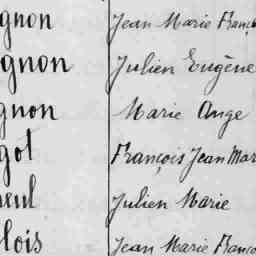 gnon Jean Marie Franç
gnon Julien Eugène
gnon Marie Ange
got François Jean Mar
eul Julien Marie
lois Jean Marie Franço